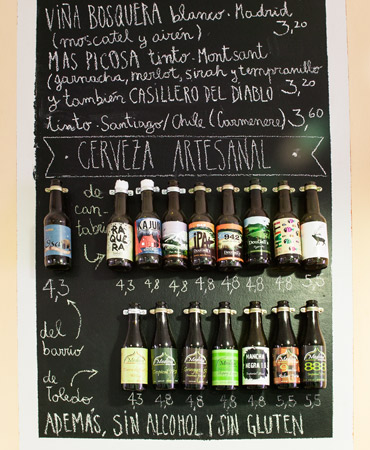 VIÑA BOSQUERA blanco · Madrid
(moscatel y airén) 3,20
MAS PICOSA tinto · Montsant
(garnacha, merlot, sirah y tempranillo
y también CASILLERO DEL DIABLO 3,20
tinto · Santiago/Chile (Carmenere) 3,60
· CERVEZA ARTESANAL ·
de
can-
tabria
RA
QUE
RA
KAJUI
IPA
942
4,3
4,3 4,8 4,8 4,8 4,8 4,8 4,8 5,5
del
barrio
de
Toledo
MANCHA
NEGRA
888
4,8 4,8 4,8 4,8 4,8 5,5 5,5
ADEMÁS, SIN ALCOHOL Y SIN GLUTEN